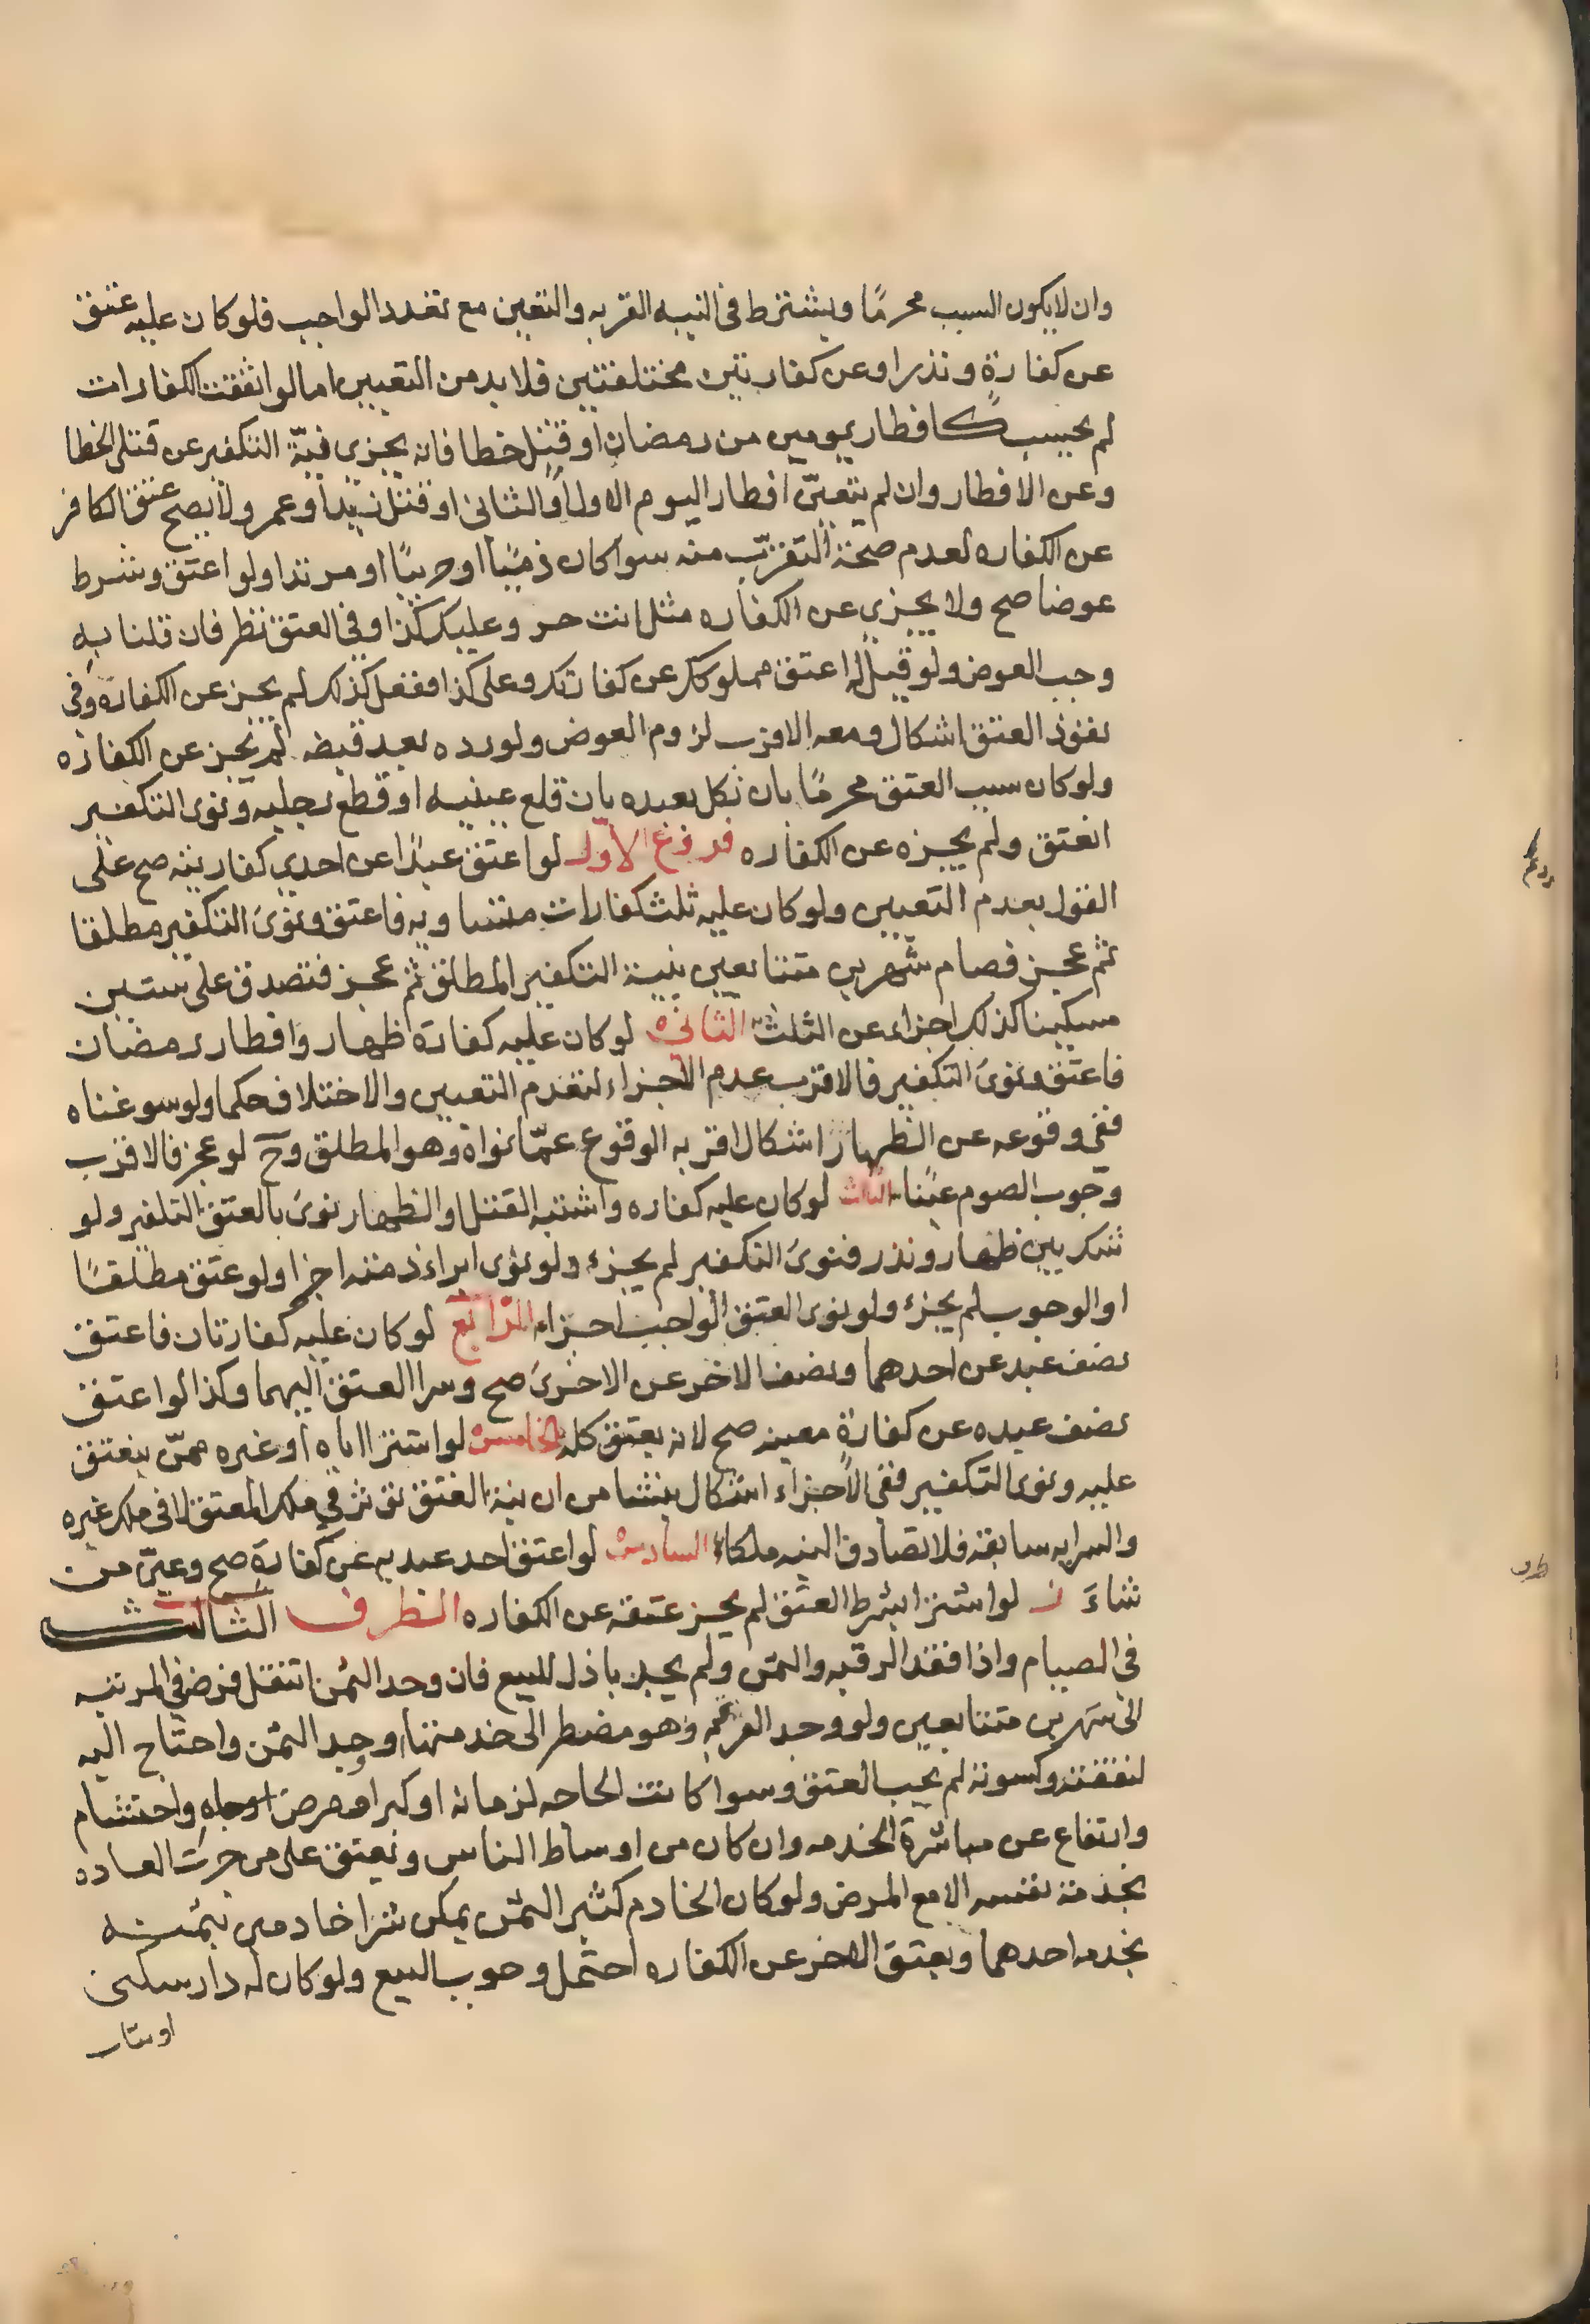 وان لايكون السبب محرمًا ويشترط فى النيه القربه والتعين مع تعدد الواجب فلو كان عليه عتق
عن كفارة ونذر او عن كفارتين مختلفتين فلا بد من التعيين اما لو اتفقت الكفارات
لم يجب كافطار يومين من رمضان او قتل خطا فانه يجزى نيّة التكفير عن قتل الخطا
وعن الافطار وان لم يتعيّن افطار اليوم الاول او الثانى او قتل زيد او عمرو ولا يصح عتق الكافر
عن الكفاره لعدم صحة التقرّب منه سوا كان ذميّا او حربيّا او مرتدا ولو اعتق وشرط
عوضا صح ولا يجزى عن الكفاره مثل انت حر وعليك كذا وفى العتق نظر فان قلنا به
وجب العوض ولو قيل له اعتق مملوكك عن كفارتك وعلى كذا ففعل كذلك لم يجز عن الكفارة وفى
نفوذ العتق اشكال ومعه الاقرب لزوم العوض ولو رده بعد قبضه لم يجز عن الكفاره
ولو كان سبب العتق محرمًا بان نكل بعبده بان قلع عينيه او قطع رجليه ونوى التكفير
انعتق ولم يجزه عن الكفاره فروع الاول لو اعتق عبدًا عن احدى كفارتيه صح على
القول بعدم التعيين ولو كان عليه ثلث كفارات متساويه فاعتق ونوى التكفير مطلقا
ثم عجز فصام شهرين متتابعين بنية التكفير المطلق ثم عجز فتصدق على ستين
مسكينا كذلك اجزاء عن الثلث الثانى لو كان عليه كفارة ظهار وافطار رمضان
فاعتق ونوى التكفير فالاقرب عدم الاجزاء لتقدم التعيين والاختلاف حكما ولو سوغناه
ففى وقوعه عن الظهار اشكال اقربه الوقوع عمّا نواه وهو المطلق وح لو عجز فالاقرب
وجوب الصوم عينًا الثالث لو كان عليه كفاره واشتبه القتل او الظهار نوى بالعتق التكفير ولو
شك بين ظهار ونذر فنوى التكفير لم يجزء ولو نوى ابراء ذمته اجزا ولو عتق مطلقًا
او الوجوب لم يجزء ولو نوى العتق الواجب اجزاء الرابع لو كان عليه كفارتان فاعتق
نصف عبد عن احدهما ونصفا لاخر عن الاخرى صح وسرا العتق اليهما وكذا لو اعتق
نصف عبده عن كفارة معينه صح لانه يعتق كله الخامس لو اشترا اباه او غيره ممّن ينعتق
عليه ونوى التكفير ففى الاجزاء اشكال ينشا من ان نية العتق تؤثر فى ملك المعتق لا فى ملك غيره
والسرايه سابقه فلا تصادق النيه ملكا السادس لو اعتق احد عبديه عن كفارة صح وعيّن من
شاءَ ز لو اشترا بشرط العتق لم يجز عتقه عن الكفاره الطرف الثالث
فى الصيام واذا فقد الرقبه والثمن ولم يجد باذل للبيع فان وجد الثمن انتقل فرض فى المرتبه
الى شهرين متتابعين ولو وجد الرقبه وهو مضطر الى خدمتها او وجد الثمن واحتاج اليه
لنفقته وكسوته لم يجب العتق وسوا كانت الحاجه لزمانه او كبر او مرض او جاه واحتشام
وارتفاع عن مباشرة الخدمه وان كان من اوساط الناس ويعتق على من جرت العاده
بخدمة نفسه الا مع المرض ولو كان الخادم كثير الثمن يمكن شرا خادمين بثمنه
يخدمه احدهما ويعتق الاخر عن الكفاره احتمل وجوب البيع ولو كان له دار سكنى